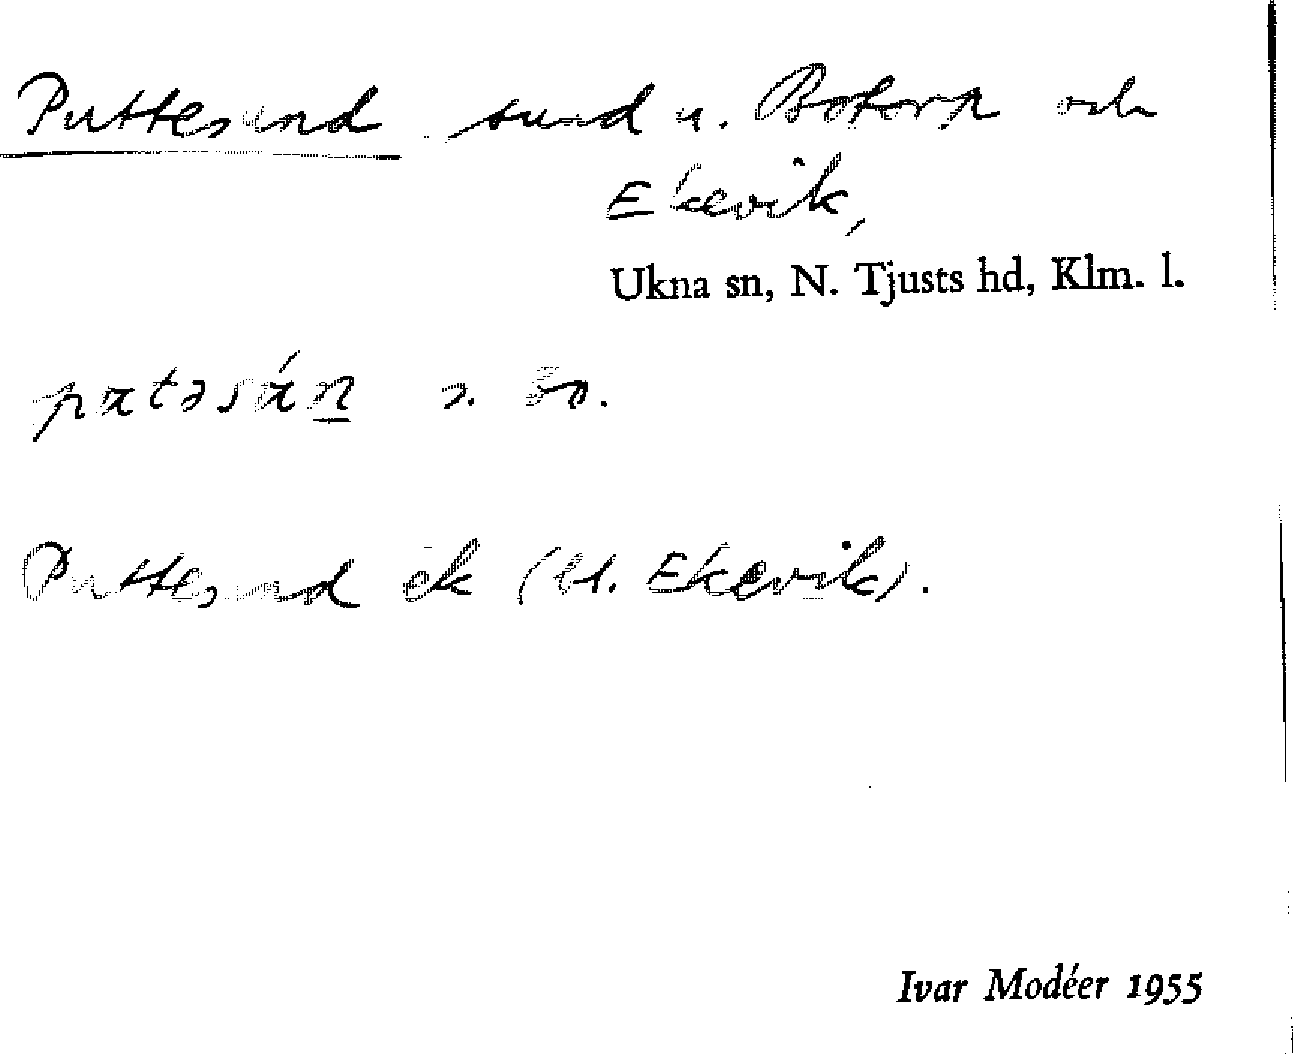 Puttesund sund u. Botorp och
Ekevik,
Ukna sn, N. Tjusts hd, Klm. l.
Puttesund ek (bl. Ekevik).
Ivar Modéer 1955